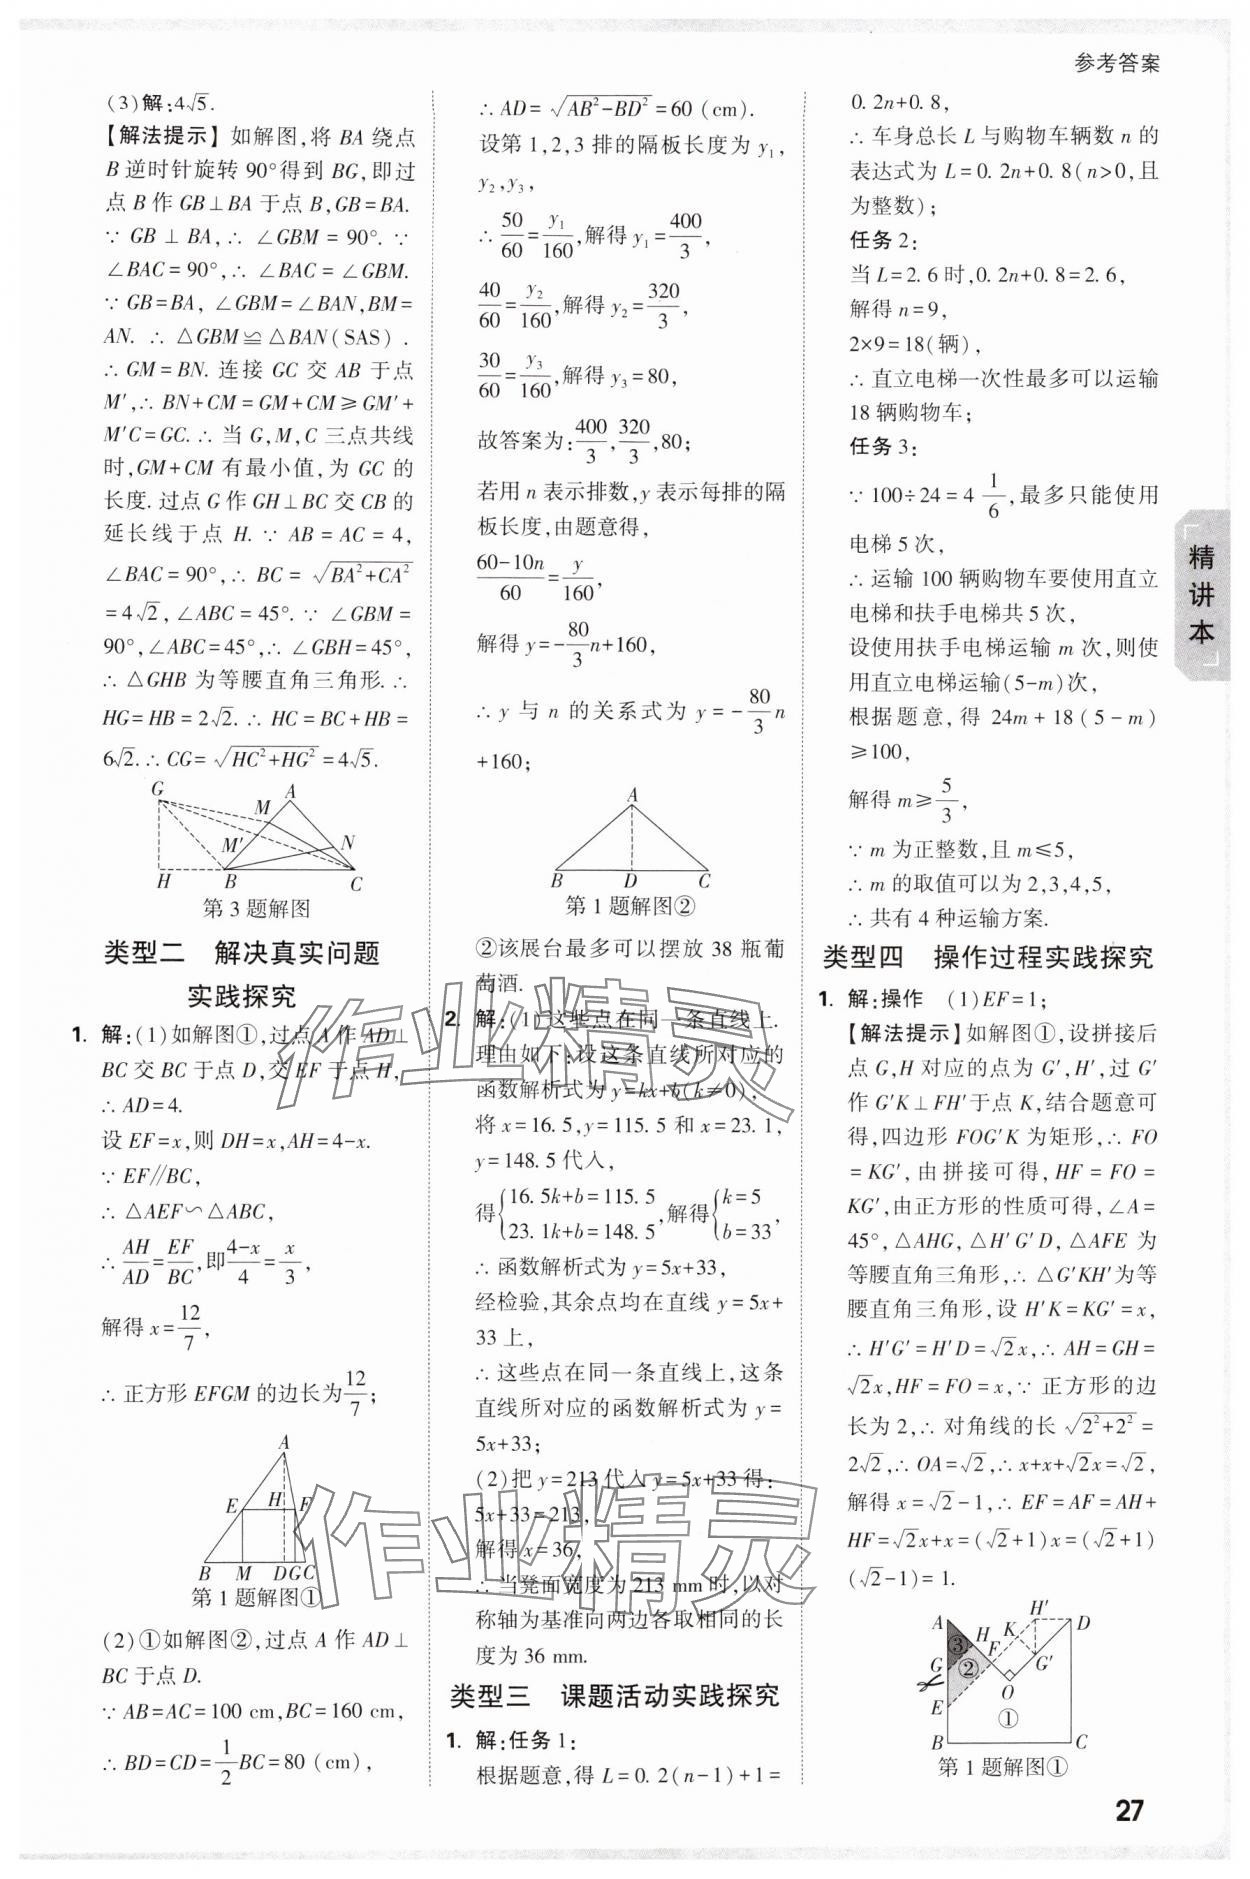 参考答案
(3)解:4√5.
【解法提示】如解图,将 BA 绕点
B 逆时针旋转 90°得到 BG,即过
点 B 作 GB⊥BA 于点 B,GB=BA.
∵ GB⊥BA,∴ ∠GBM=90°. ∵
∠BAC=90°,∴ ∠BAC=∠GBM.
∵ GB=BA, ∠GBM=∠BAN,BM=
AN. ∴ △GBM≌△BAN(SAS).
∴ GM=BN. 连接 GC 交 AB 于点
M′,∴ BN+CM=GM+CM≥GM′+
M′C=GC. ∴ 当 G,M,C 三点共线
时,GM+CM 有最小值,为 GC 的
长度. 过点 G 作 GH⊥BC 交 CB 的
延长线于点 H. ∵ AB=AC=4,
∠BAC=90°,∴ BC=√(BA²+CA²)
=4√2,∠ABC=45°. ∵ ∠GBM=
90°,∠ABC=45°,∴ ∠GBH=45°,
∴ △GHB 为等腰直角三角形. ∴
HG=HB=2√2. ∴ HC=BC+HB=
6√2. ∴ CG=√(HC²+HG²)=4√5.
G A M M′ N H B C
第 3 题解图
类型二 解决真实问题
实践探究
1. 解:(1)如解图①,过点 A 作 AD⊥
BC 交 BC 于点 D,交 EF 于点 H,
∴ AD=4.
设 EF=x,则 DH=x,AH=4-x.
∵ EF∥BC,
∴ △AEF∽△ABC,
∴ AH/AD=EF/BC,即(4-x)/4=x/3,
解得 x=12/7,
∴ 正方形 EFGM 的边长为12/7;
A E H F B M D G C
第 1 题解图①
(2)①如解图②,过点 A 作 AD⊥
BC 于点 D.
∵ AB=AC=100 cm,BC=160 cm,
∴ BD=CD=1/2BC=80(cm),
∴ AD=√(AB²-BD²)=60(cm).
设第 1,2,3 排的隔板长度为 y₁,
y₂,y₃,
∴ 50/60=y₁/160,解得 y₁=400/3,
40/60=y₂/160,解得 y₂=320/3,
30/60=y₃/160,解得 y₃=80,
故答案为:400/3,320/3,80;
若用 n 表示排数,y 表示每排的隔
板长度,由题意得,
(60-10n)/60=y/160,
解得 y=-80/3n+160,
∴ y 与 n 的关系式为 y=-80/3n
+160;
A B D C
第 1 题解图②
②该展台最多可以摆放 38 瓶葡
萄酒.
2. 解:(1)这些点在同一条直线上.
理由如下:设这条直线所对应的
函数解析式为 y=kx+b(k≠0),
将 x=16.5,y=115.5 和 x=23.1,
y=148.5 代入,
得{16.5k+b=115.5
23.1k+b=148.5,解得{k=5
b=33,
∴ 函数解析式为 y=5x+33,
经检验,其余点均在直线 y=5x+
33 上,
∴ 这些点在同一条直线上,这条
直线所对应的函数解析式为 y=
5x+33;
(2)把 y=213 代入 y=5x+33 得:
5x+33=213,
解得 x=36,
∴ 当凳面宽度为 213 mm 时,以对
称轴为基准向两边各取相同的长
度为 36 mm.
类型三 课题活动实践探究
1. 解:任务 1:
根据题意,得 L=0.2(n-1)+1=
0.2n+0.8,
∴ 车身总长 L 与购物车辆数 n 的
表达式为 L=0.2n+0.8(n>0,且
为整数);
任务 2:
当 L=2.6 时,0.2n+0.8=2.6,
解得 n=9,
2×9=18(辆),
∴ 直立电梯一次性最多可以运输
18 辆购物车;
任务 3:
∵ 100÷24=4 1/6,最多只能使用
电梯 5 次,
∴ 运输 100 辆购物车要使用直立
电梯和扶手电梯共 5 次,
设使用扶手电梯运输 m 次,则使
用直立电梯运输(5-m)次,
根据题意,得 24m+18(5-m)
≥100,
解得 m≥5/3,
∵ m 为正整数,且 m≤5,
∴ m 的取值可以为 2,3,4,5,
∴ 共有 4 种运输方案.
类型四 操作过程实践探究
1. 解:操作 (1)EF=1;
【解法提示】如解图①,设拼接后
点 G,H 对应的点为 G′,H′,过 G′
作 G′K⊥FH′于点 K,结合题意可
得,四边形 FOG′K 为矩形,∴ FO
=KG′,由拼接可得,HF=FO=
KG′,由正方形的性质可得,∠A=
45°,△AHG,△H′G′D,△AFE 为
等腰直角三角形,∴ △G′KH′为等
腰直角三角形,设 H′K=KG′=x,
∴ H′G′=H′D=√2x,∴ AH=GH=
√2x,HF=FO=x,∵ 正方形的边
长为 2,∴ 对角线的长√(2²+2²)=
2√2,∴ OA=√2,∴ x+x+√2x=√2,
解得 x=√2-1,∴ EF=AF=AH+
HF=√2x+x=(√2+1)x=(√2+1)
(√2-1)=1.
A H F K H′ D G ③ ② G′ E O ① B C
第 1 题解图①
精讲本
27
作业精灵
作业精灵